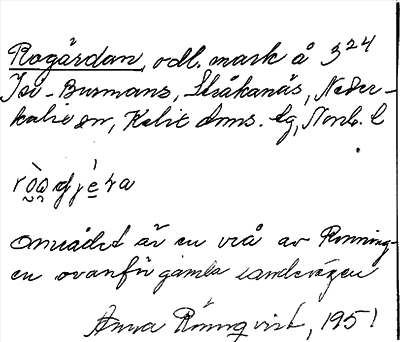 Rogärdan, odl. mark å 3²⁴
Isi-Burmans, Stråkanäs, Neder-
kalix sn, Kalix dmns. lg, Norrb. l

området är en vrå av Rönning-
en ovanför gamla landsvägen
Anna Rönnqvist, 1951